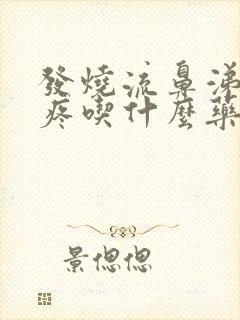 發燒流鼻涕
疼喫什麼藥
景偲偲